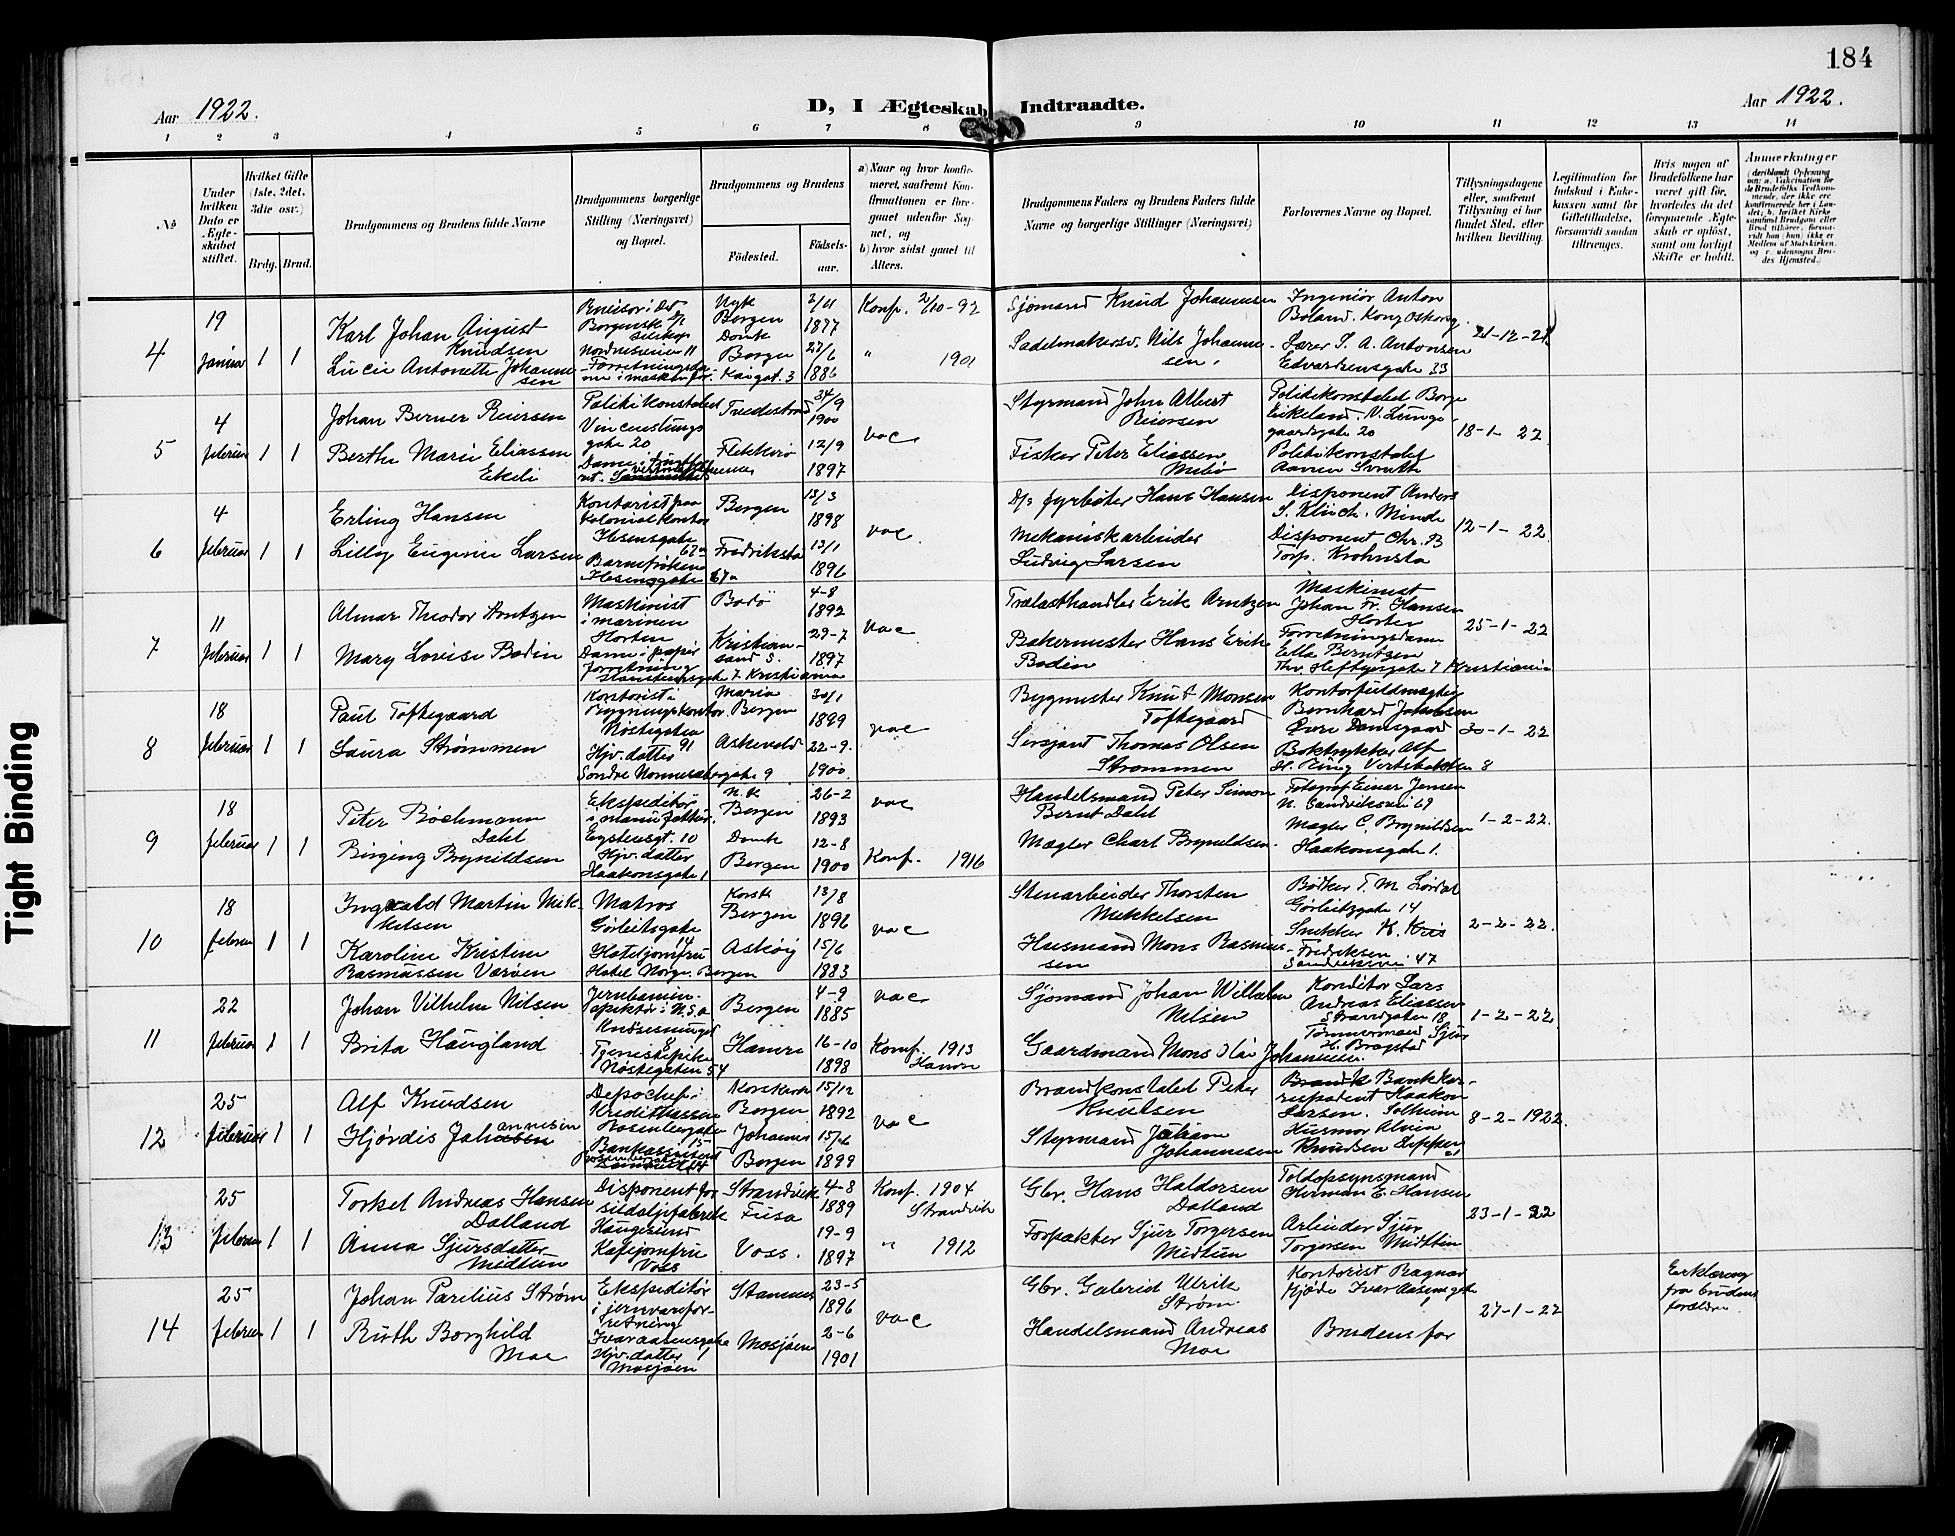 184
Aar 1922.
D, I Ægteskab Indtraadte.
Aar 1922.
1 2 3 4 5 6 7 8 9 10 11 12 13 14
No
Under hvilken Dato er Ægteskabet stiftet.
Hvilket Gifte (1ste, 2det, 3die osv.)
Brdg. Brud.
Brudgommens og Brudens fulde Navne
Brudgommens borgerlige Stilling (Næringsvei) og Bopæl.
Brudgommens og Brudens
Födested.
Födselsaar.
a) Naar og hvor konfirmeret, saafremt Konfirmationen er foregaaet udenfor Sognet, og
b) hvor sidst gaaet til Alters.
Brudgommens Faders og Brudens Faders fulde Navne og borgerlige Stillinger (Næringsvei)
Forlovernes Navne og Bopæl.
Tillysningsdagene eller, saafremt Tillysning ei har fundet Sted, efter hvilken Bevilling.
Legitimation for Indskud i Enkekassen samt for Giftetilladelse, forsaavidt saadan tiltrænges.
Hvis nogen af Brudefolkene har været gift før, hvorledes da det foregaaende Ægteskab er oplöst, samt om lovligt Skifte er holdt.
Anmærkninger
4
19 Januar
1 1
Karl Johan August
Knudsen
Lucie Antonette Johanne
sen
Nordnesveien 11
Nyk
Bergen
Domk
Bergen
2/11
1877
27/6
1886
Konf. 2/10-92
" 1901
Sjömand Knud Johannesen
Sadelmakersv. Nils Johanne
sen.
Ingeniör Anton
Boland. Kong Oskarsg.
Lærer S. A. Antonsen
Edvardsensgate 33
21-12-21
5
4 februar
1 1
Johan Berner Reiersen
Berthe Marie Eliassen
Ekeli
Politikonstabel
Vincenslungs
gate 20
Tvedestrand
Flekkerö
1900
12/9
1897
vac
Styrmand John Albert
Reiersen
Fisker Peter Eliassen
Politikonstabel Borge
Eikeland. V. Lunge
gaardsgate 20
Politikonstabel
18-1-22
6
4 februar
1 1
Erling Hansen
Lilly Eugenie Larsen
Kontorist paa
kolonialkontor
Ibsensgate
67a
Barnefröken
Ibsensgate 67a
Bergen
Fredrikstad
13/3
1898
13/1
1896
vac.
D/s fyrböter Hans Hansen
Mekaniskarbeider
Ludvig Larsen
Disponent Anders
S. Klüch. Minde
Disponent Chr. B
Torp. Krohnsta
12-1-22
7
11 februar
1 1
Almar Theodor Arntzen
Mary Lovise Bodin
Maskinist
i marinen
Horten
Dame i papir
forretning
Bodö
Kristian-
sand S.
7 Kristiania
4-8
1892
29-7
1897
vac
Trælasthandler Erik Arntzen
Bakermester Hans Erik
Bodin
Maskinist
Johan Fr. Hansen
Horten
Forretningsdame
Ella Berntzen
Thv. Heftyesgate 7 Kristiania
25-1-22
8
18 februar
1 1
Paul Toftegaard
Laura Strømmen
Kontorist i
Bygningskontor.
Nöstegaten
91
Hjv. datter
Söndre Nonnesætergate 9
Maria
Bergen
Askevold
30/1
1899
22-9.
1900
vac
Bygmester Knut Monsen
Toftegaard
Sersjant Thomas Olsen
Strømmen
Kontorfuldmægtig
Bernhard Jakobsen
Övre Damsgaard
Boktrykker Alf
30-1-22
9
18 februar
1 1
Peter Böchmann
Dahl
Birging Brynildsen
Ekspeditör
Hjv. datter
Haakonsgate 1
N.K
Bergen
Domk
Bergen
26-2
1893
12-8
1900
vac
Konf. 1916
Handelsmand Peter Simon
Bernt Dahl
Mægler Charl Brynildsen.
Fotograf Einar Jensen
N. Sandviksvei 69
Mægler C. Brynildsen
Haakonsgate 1.
1-2-22.
10
18 februar
1 1
Ingvald Martin Mik-
kelsen
Karoline Kristine
Rasmussen Værøen
Matros
Görbitsgate
14
Hoteljomfru
Hotel Norge. Bergen
Korsk
Bergen
Asköy
13/8
1896
15/6
1883
vac
Stenarbeider Thorsten
Mikkelsen
Husmand Mons Rasmus-
sen
Bödker T. M. Lördal
Görbitzgate 14
Snekker K. Kris
Fredriksen
Sandviksvei 47
2-2-22.
11
22 februar
1 1
Johan Vilhelm Nilsen
Brita Haugland
Knösesmuget
8
Tjenestepike
Nöstegaten 54
Bergen
Hamre
4-9
1885
16-10
1898
vac
Konf. 1913
Hamre
Sjömand Johan Wilhelm
Nilsen
Gaardmand Mons Olai Johannesen.
Konditor Lars
Andreas Eliassen
Strandgaten 18
Tömmermand Sjur
H. Bragstad
1-2-22
12
25 februar
1 1
Alf Knudsen
Hjördis Johannesen
Depochef i
Kreditkassen
Rosenbergsgaten
15
Bankassistent
Korskirk
Bergen
Johannes
Bergen
15/12
1892
15/6
1899
vac
Brandkonstabel Peter
Knudsen
Styrmand Julian
Johannesen
Brandk Bankkor-
respondent Haakon
Larsen. Solheim
Husmor Alvia
Knudsen
8-2-1922.
13
25 februar
1 1
Torkel Andreas Hansen
Dalland
Anna Sjursdatter
Midttun
Disponent for
sildoljefabrik
Haugesund
Kafejomfru
Voss
Strandvik
Fusa
Voss.
4-8
1889
19-9
1897
Konf. 1904
Strandvik
" 1912
Gbr. Hans Haldorsen
Dalland
Forpakter Sjur Torgersen
Midttun
Toldopsynsmand
Herman E. Hansen
Arbeider Sjur
Torgersen Midttun
23-1-22
14
25 februar
1 1
Johan Parelius Strøm
Ruth Borghild
Moe
Ekspeditör
i jernvarefor-
retning
Ivar Aasensgate
1
Hjv. datter
Mosjöen
Stamnes
Mosjöen
23-5
1896
2-6
1901
vac
Gbr. Gabriel Ulrik
Strøm.
Handelsmand Andreas
Moe
Kontorist Ragnar
Hjöde Ivar Aasensgate
1
Brudens far
27-1-22
Erklæring
fra brudens
forældre.
Tight Binding